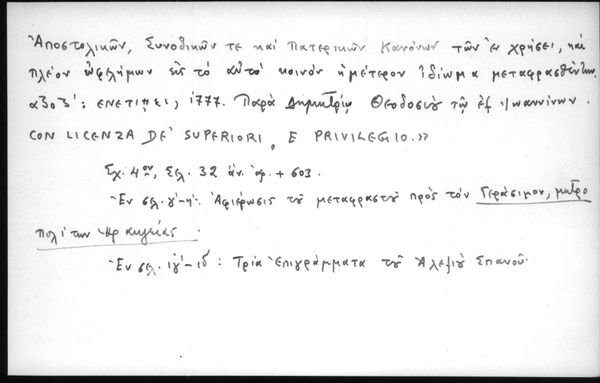 Ἀποστολικῶν, Συνοδικῶν τε καὶ Πατερικῶν Κανόνων τῶν ἐν χρήσει, καὶ
πλέον ὠφελήμων εἰς τὸ αὐτὸ κοινὸν ἡμέτερον ἰδίωμα μεταφρασθέντων
αψοζ': ΕΝΕΤΙΗΣΙ, 1777. Παρὰ Δημητρίῳ Θεοδοσίου τῷ ἐξ Ἰωαννίνων.
CON LICENZA DE' SUPERIORI, E PRIVILEGIO.»
Σχ. 4ον, Σελ. 32 ἀν. ἀρ. + 603.
Ἐν σελ. γ'-η': Ἀφιέρωσις τοῦ μεταφραστοῦ πρὸς τὸν Γεράσιμον, μητρο
πολίτην Ἡρακλείας.
Ἐν σελ. ιγ'-ιδ': Τρία Ἐπιγράμματα τοῦ Ἀλεξίου Σπανοῦ.